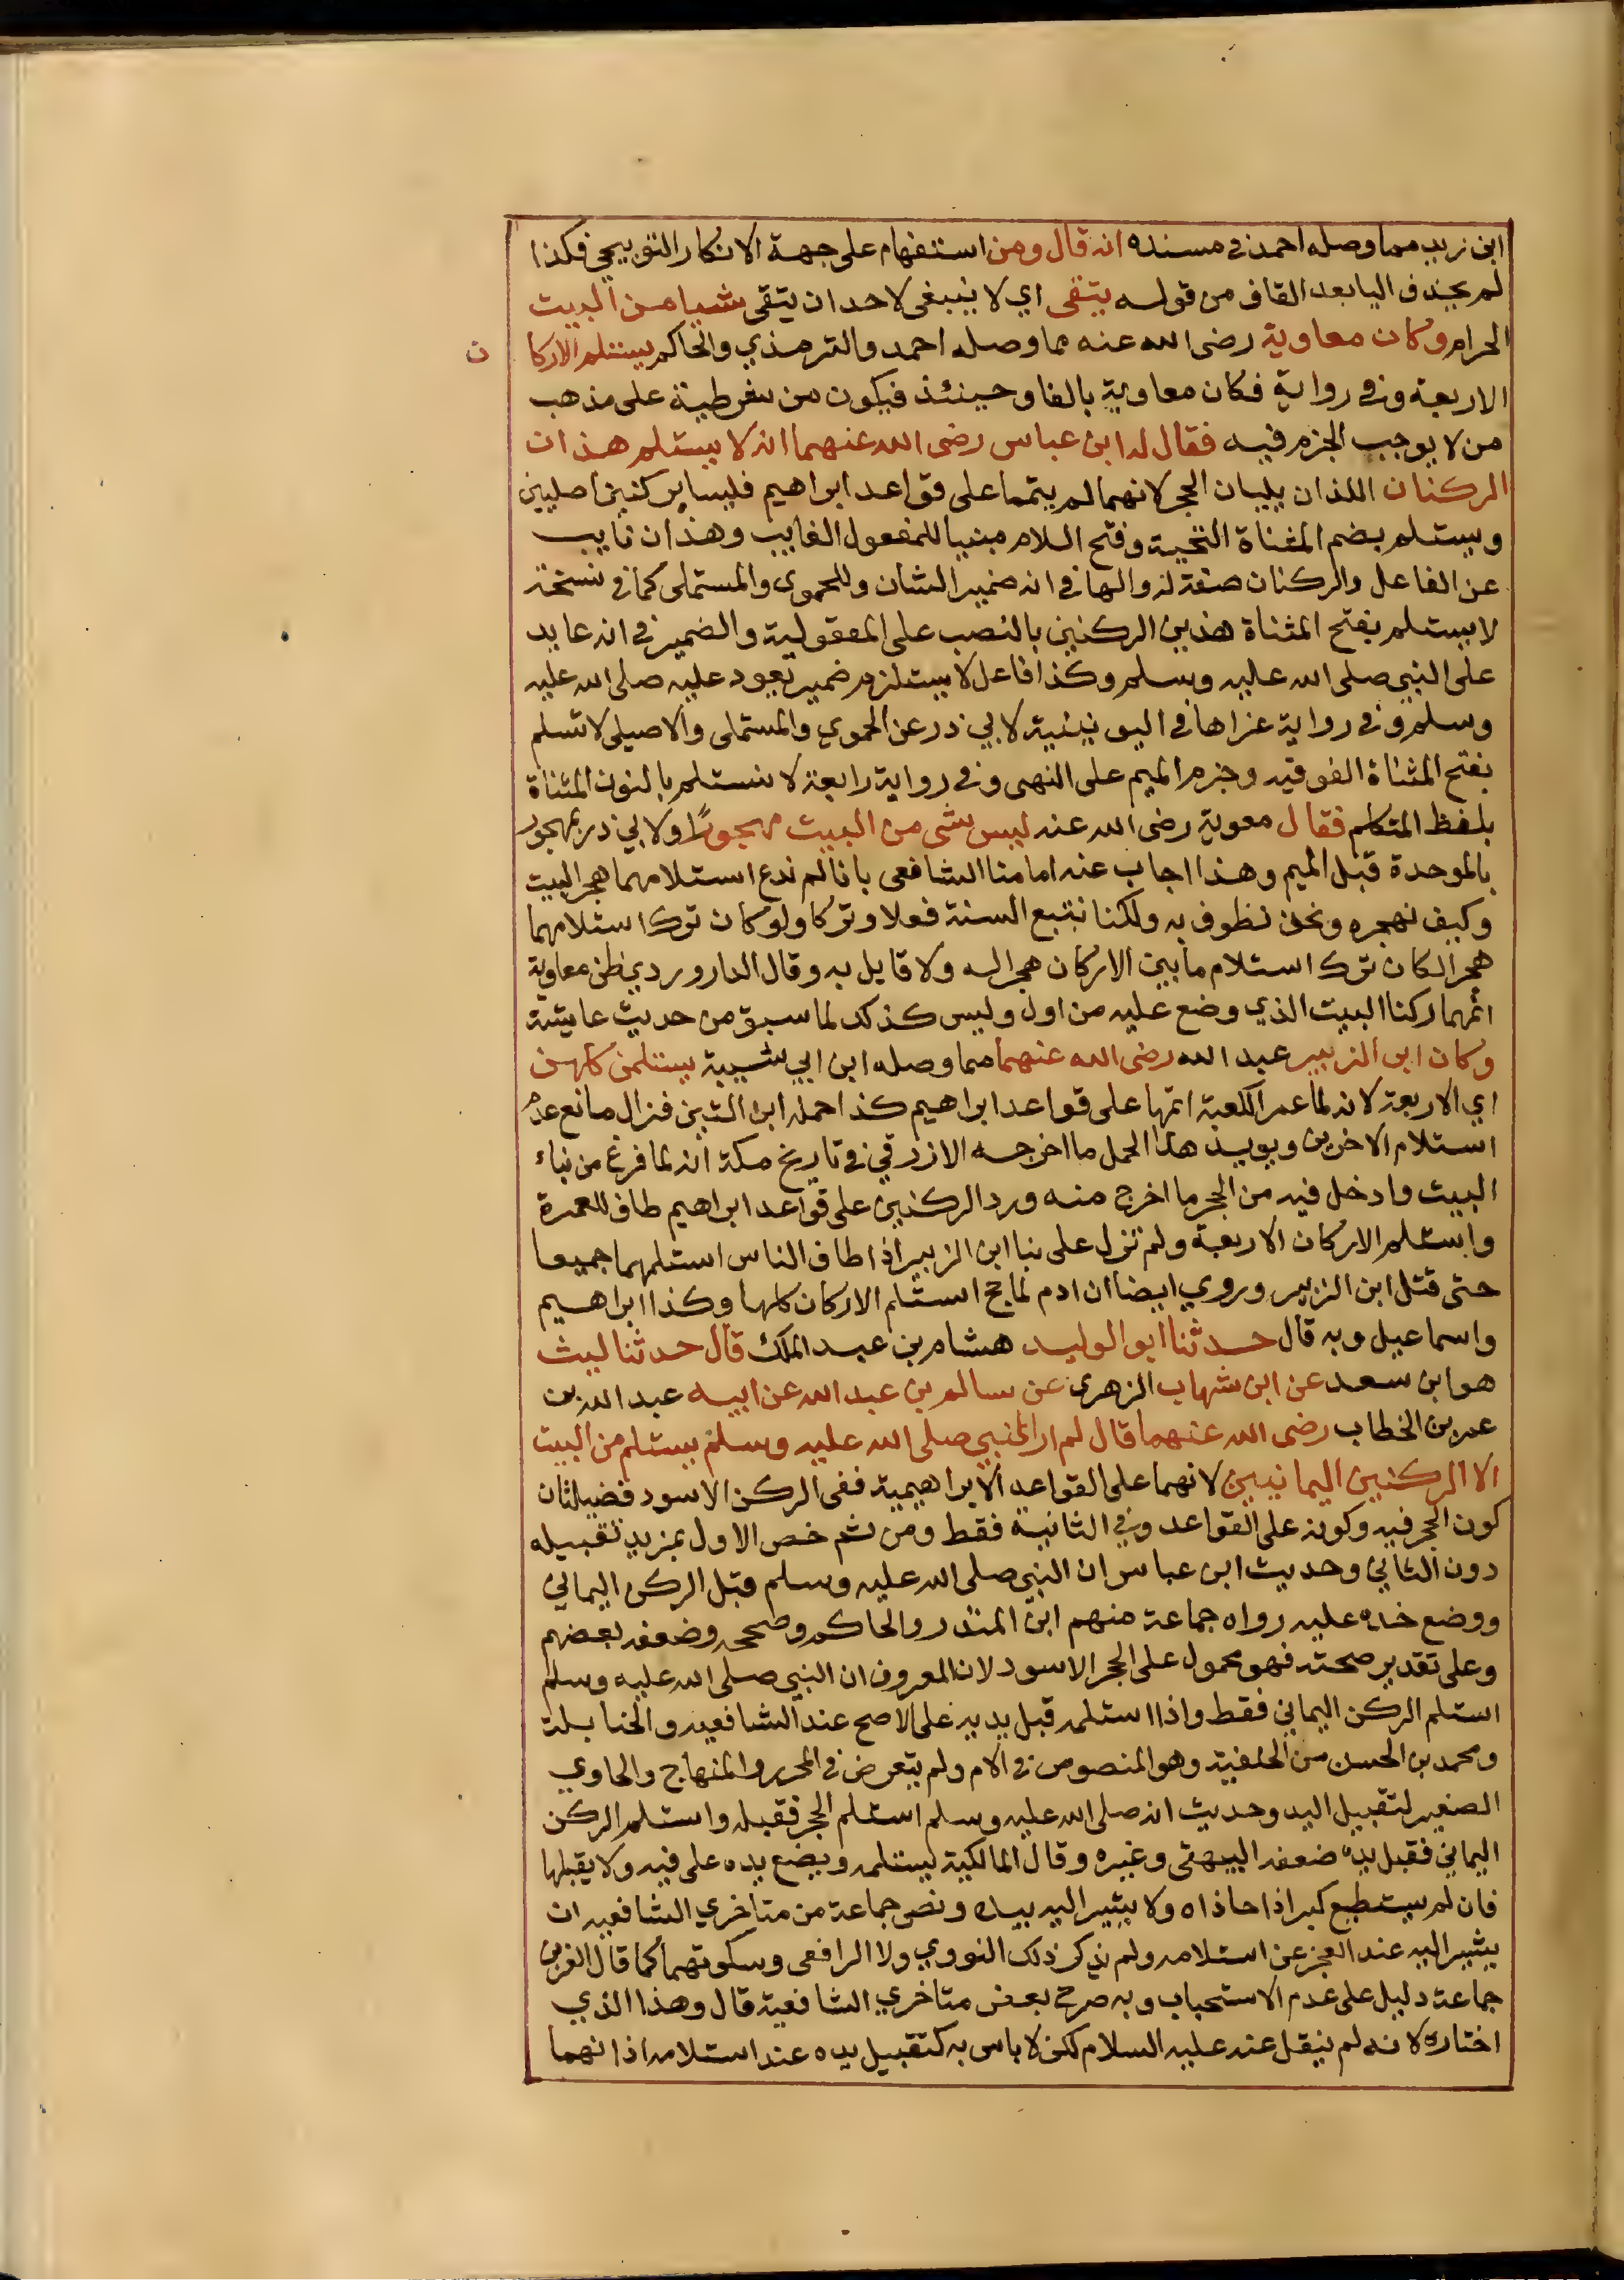 ابن زيد مما وصله احمد في مسنده انه قال ومن استفهام على جهة الانكار التوبيخي فكذا
لم يحذف اليا بعد القاف من قوله يتقى اي لا ينبغى لاحد ان يتقى شيا من البيت
الحرام وكان معاوية رضى الله عنه مما وصله احمد والترمذي والحاكم يستلم الاركان
الاربعة وفي رواية فكان معاوية بالفا وحينئذ فيكون من شرطية على مذهب
من لا يوجب الجزم فيه فقال له ابن عباس رضى الله عنهما انه لا يستلم هذان
الركنان اللذان يليان الحجر لانهما لم يتمما على قواعد ابراهيم فليسا بركنين اصليين
ويستلم بضم المثناة التحية وفتح اللام مبنيا للمفعول الغايب وهذان نايب
عن الفاعل والركنان صفة له والها في انه ضمير الشان وللحموى والمستملى كما في نسخة
لا يستلم بفتح المثناة هذين الركنين بالنصب على المفعولية والضمير في انه عايد
على النبي صلى الله عليه وسلم وكذا فاعل لا يستلزم ضمير يعود عليه صلى الله عليه
وسلم وفي رواية عزاها في اليونينية لابي ذر عن الحموي والمستملى والاصيلى لا تسلم
بفتح المثناة الفوقيه وجزم الميم على النهى وفي رواية رابعة لا نستلم بالنون المثناة
بلفظ المتكلم فقال معوية رضى الله عنه ليس شى من البيت مهجورًا ولابي ذر بمهجور
بالموحدة قبل الميم وهذا اجاب عنه امامنا الشافعى بانا لم ندع استلامهما هجر البيت
وكيف نهجره ونحن نطوف به ولكنا نتبع السنة فعلا وتركا ولو كان ترك استلامهما
هجرا لكان ترك استلام ما بين الاركان هجرا له ولا قايل به وقال الداروردي ظن معاوية
انهما ركنا البيت الذي وضع عليه من اول وليس كذلك لما سبق من حديث عايشة
وكان ابن الزبير عبد الله رضى الله عنهما مما وصله ابن ابي شيبة يستلمن كلهن
اي الاربعة لانه لما عمر الكعبة اتمها على قواعد ابراهيم كذا حمله ابن التين فزال مانع عدم
استلام الاخرين ويويد هذا الحمل ما اخرجه الازرقي في تاريخ مكة انه لما فرغ من بناء
البيت وادخل فيه من الحجر ما اخرج منه ورد الركنين على قواعد ابراهيم طاف للعمرة
واستلم الاركان الاربعة ولم تزل على بنا ابن الزبير اذا طاف الناس استلمهما جميعا
حتى قتل ابن الزبير وروي ايضا ان ادم لما حج استلم الاركان كلها وكذا ابراهيم
واسماعيل وبه قال حدثنا ابو الوليد هشام بن عبد الملك قال حدثنا ليث
هو ابن سعد عن ابن شهاب الزهرى عن سالم بن عبد الله عن ابيه عبد الله بن
عمر بن الخطاب رضى الله عنهما قال لم ار النبي صلى الله عليه وسلم يستلم من البيت
الا الركنين اليمانيين لانهما على القواعد الابراهيمية ففى الركن الاسود فضيلتان
كون الحجر فيه وكونه على القواعد وفي الثانية فقط ومن ثم خص الاول بمزيد تقبيله
دون الثاني وحديث ابن عباس ان النبي صلى الله عليه وسلم قبل الركن اليماني
ووضع خده عليه رواه جماعة منهم ابن المنذر والحاكم وصححه وضعفه بعضهم
وعلى تقدير صحته فهو محمول على الحجر الاسود لان المعروف ان النبي صلى الله عليه وسلم
استلم الركن اليماني فقط واذا استلمه قبل يديه على الاصح عند الشافعيه والحنابلة
ومحمد بن الحسن من الحنفية وهو المنصوص في الام ولم يتعرض في المحرر والمنهاج والحاوي
الصغير لتقبيل اليد وحديث انه صلى الله عليه وسلم استلم الحجر فقبله واستلم الركن
اليماني فقبل يده ضعفه البيهقى وغيره وقال المالكية يستلمه ويضع يده على فيه ولا يقبلها
فان لم يستطع كبر اذا حاذاه ولا يشير اليه بيده ونص جماعة من متاخري الشافعيه ان
يشير اليه عند العجز عن استلامه ولم يذكر ذلك النووي ولا الرافعى وسكوتهما كما قال العز بن
جماعة دليل على عدم الاستحباب وبه صرح بعض متاخري الشافعية قال وهذا الذي
اختاره لانه لم ينقل عنه عليه السلام لكن لا باس به كتقبيل يده عند استلامه اذا نهما